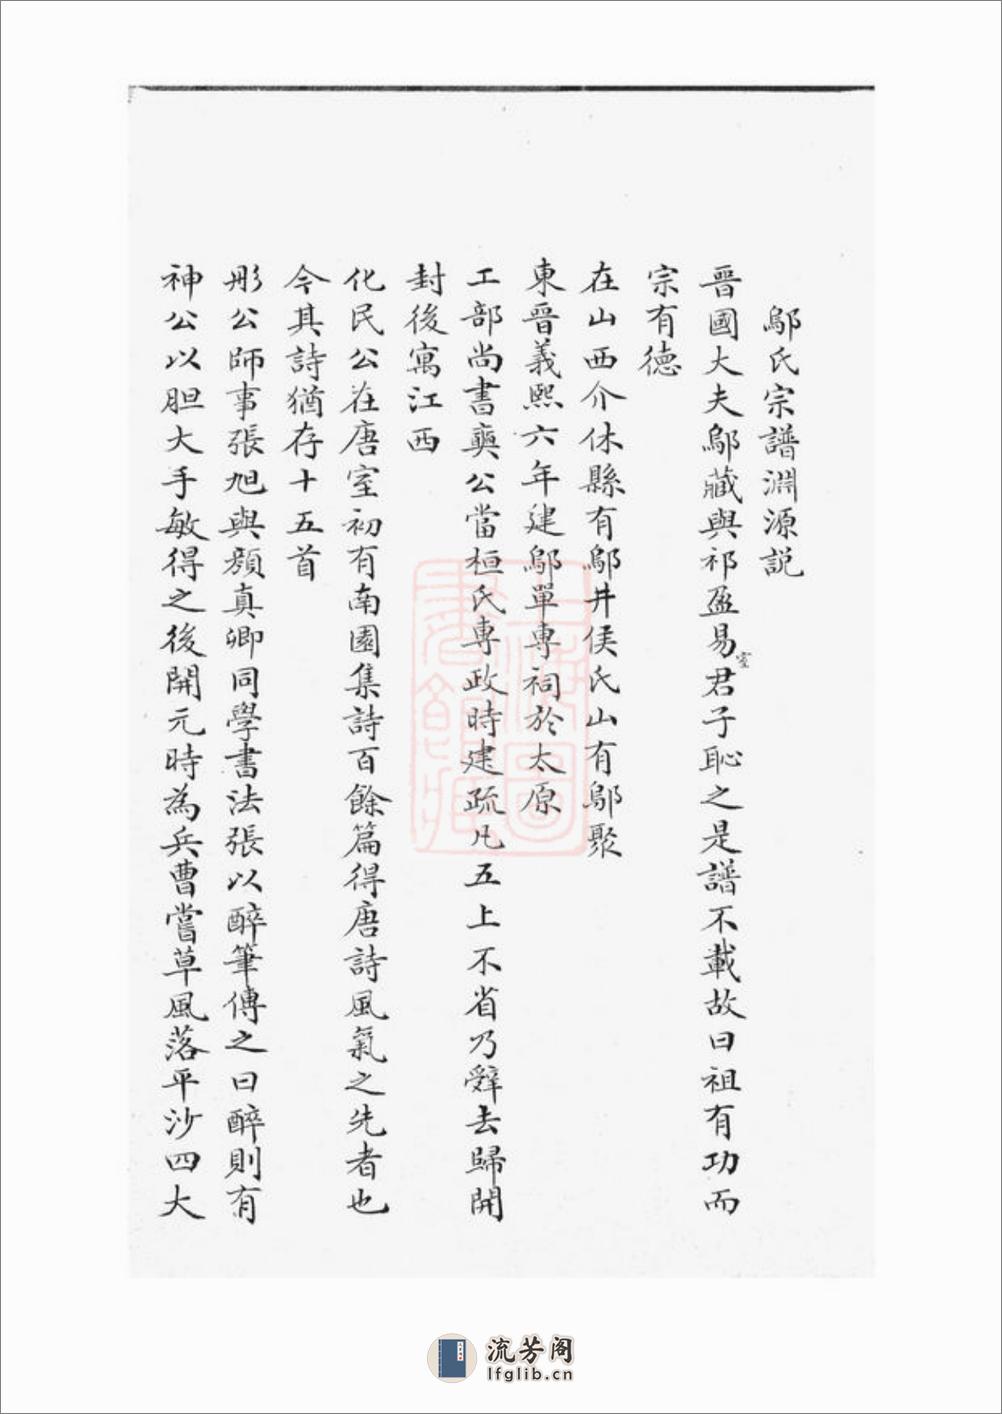 鄔氏宗譜淵源説
晉國大夫鄔藏與祁盈易室君子恥之是譜不載故曰祖有功而
宗有德
在山西介休縣有鄔井侯氏山有鄔聚
東晉義熙六年建鄔單專祠於太原
工部尚書奭公當桓氏專政時建疏凡五上不省乃辤去歸開
封後寓江西
化民公在唐室初有南園集詩百餘篇得唐詩風氣之先者也
今其詩猶存十五首
彤公師事張旭與顔真卿同學書法張以醉筆傳之曰醉則有
神公以胆大手敏得之後開元時為兵曹嘗草風落平沙四大
上海圖書館藏
流芳阁
lfglib.cn